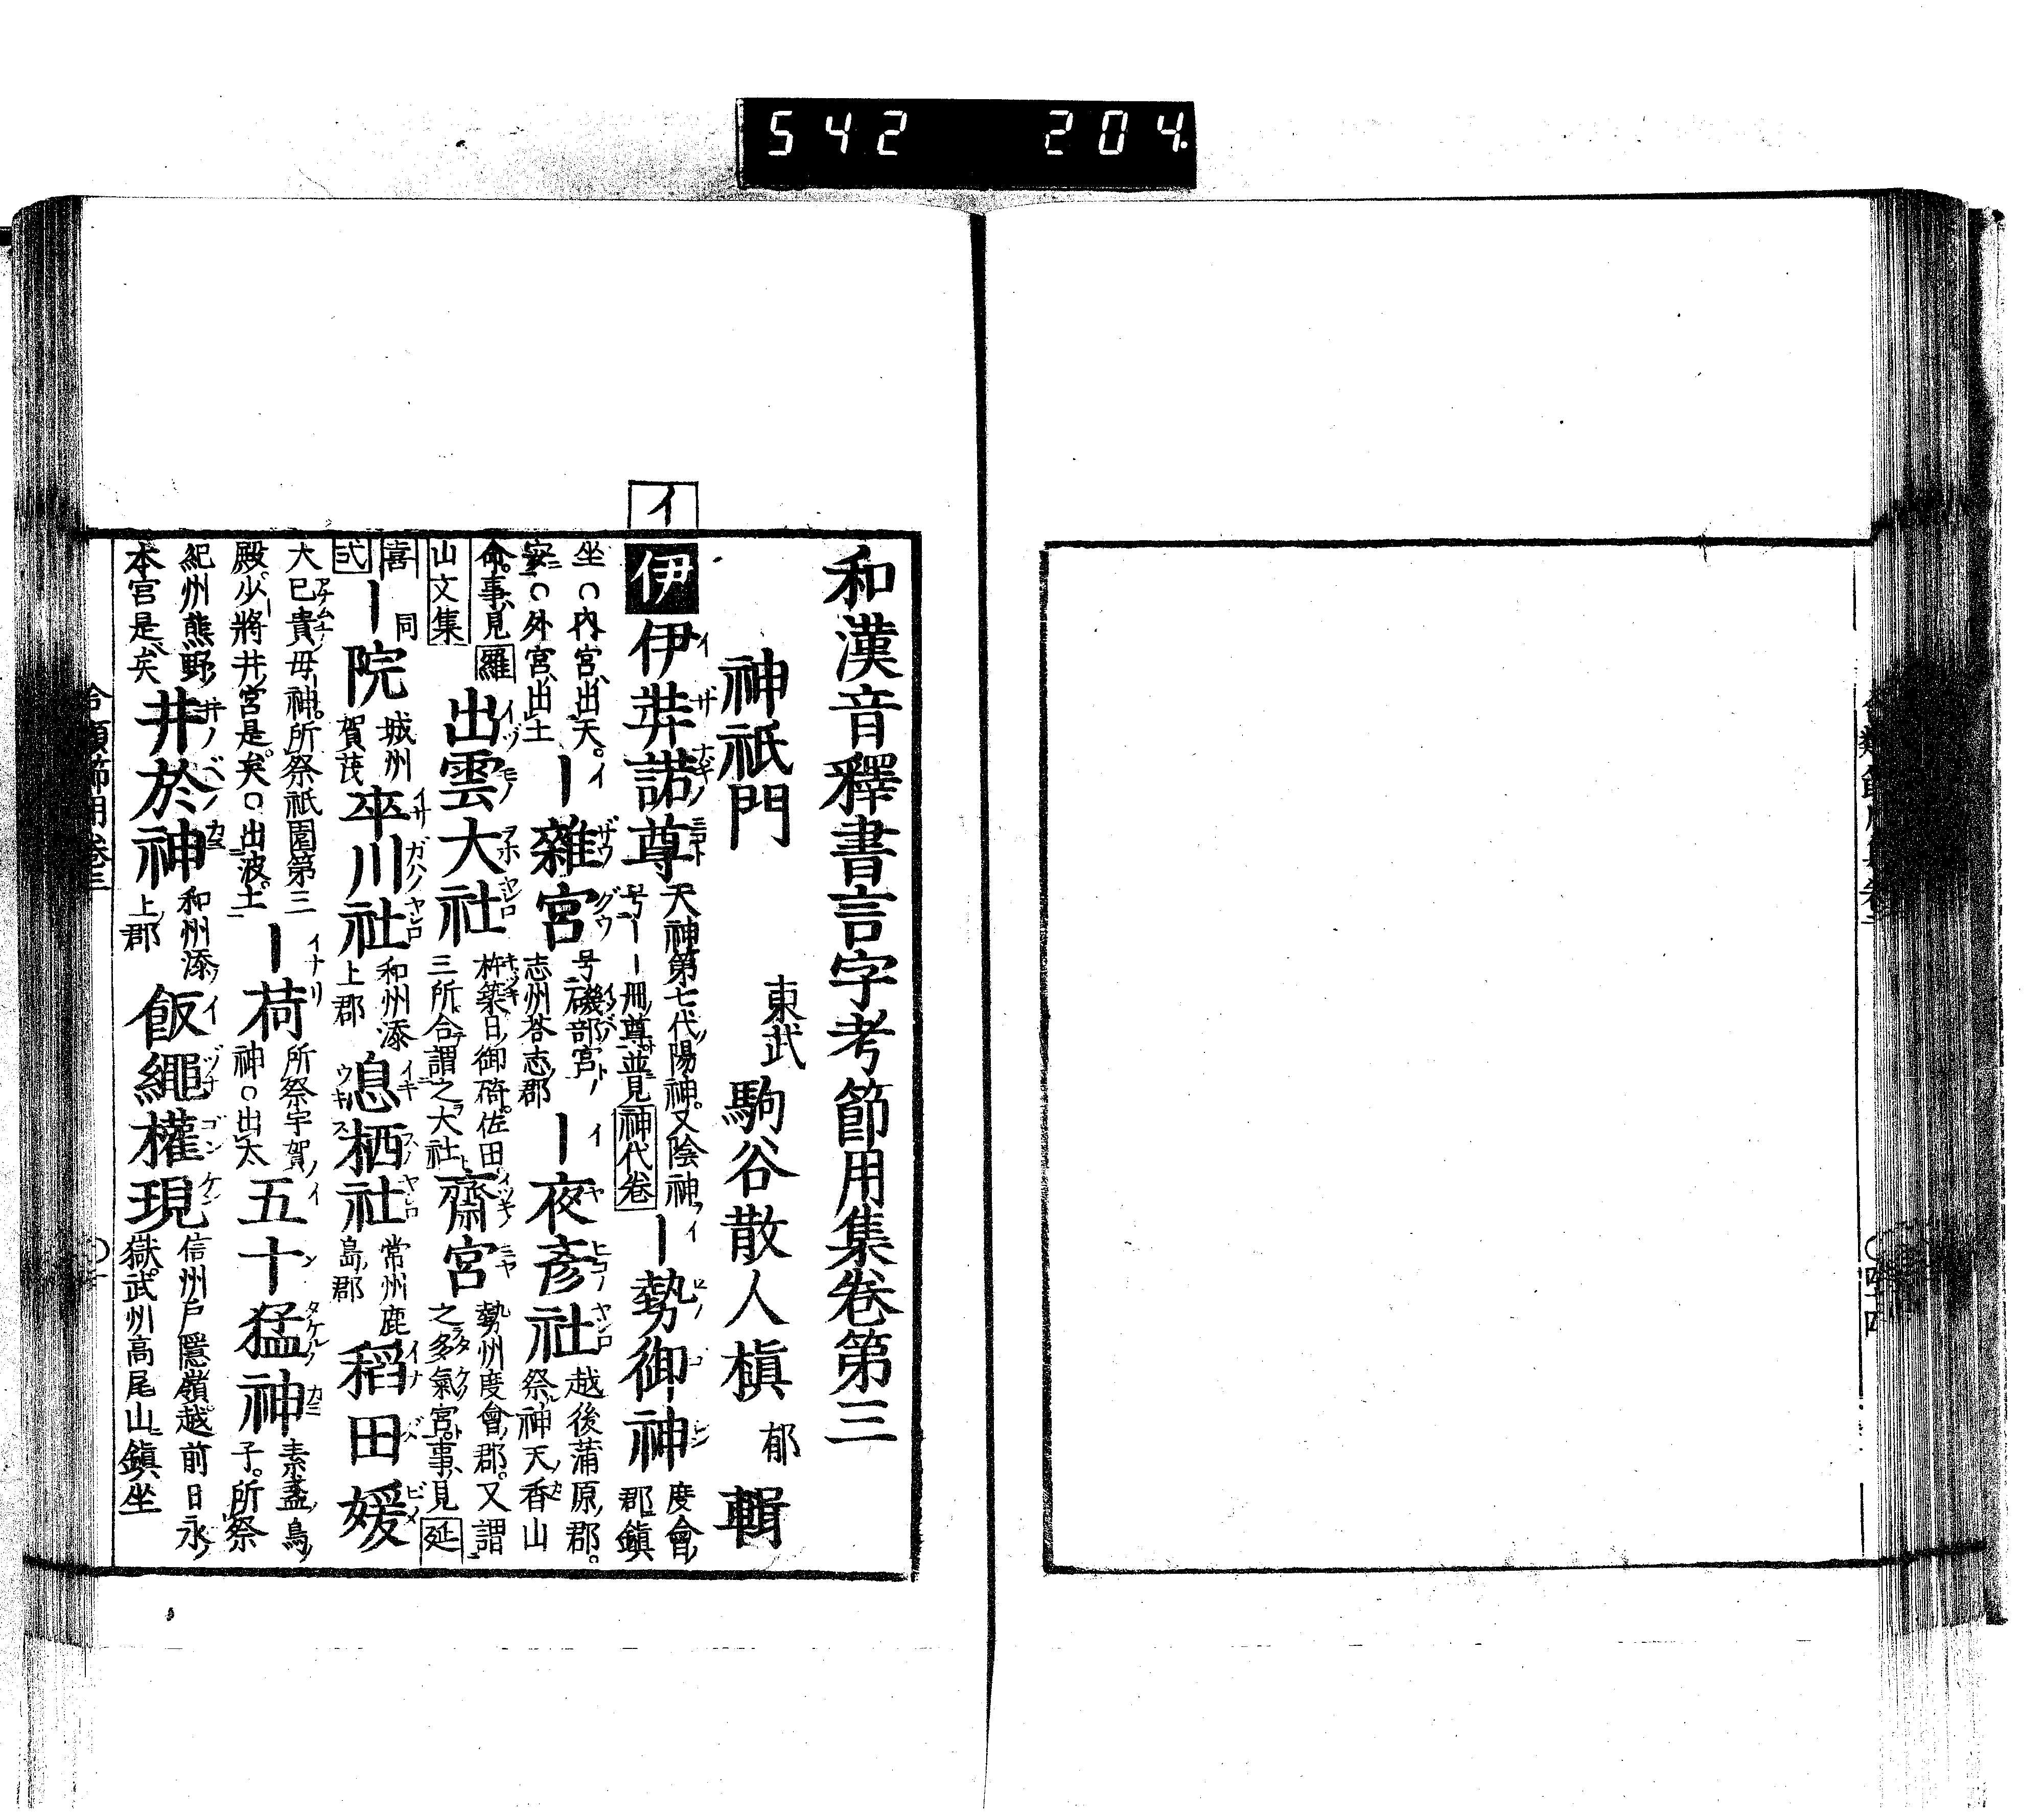 542 204.
和漢音釋書言字考節用集卷第三
神祇門 東武 駒谷散人槙 郁 輯
イ
伊 伊弉諾尊 天神第七代陽神。又陰神号ーー冊尊並見神代卷 ー勢御神 度會郡鎮
坐○内宮出天。安○外宮出土 ー雜宮 号磯部宮志州荅志郡 ー夜彥社 越後蒲原郡。祭神天香山
命。事見羅山文集 出雲大社 杵築日御碕。佐田三所合謂之大社 齋宮 勢州度會郡。又謂之多氣宮。事見延
喜式 ー院 同城州賀茂 率川社 和州添上郡 息栖社 常州鹿島郡 稻田媛
大巳貴母神。所祭祇園第三殿。少將井宮是矣。○出波。土 ー荷 所祭宇賀神○出太 五十猛神 素盞烏子。所祭
紀州熊野本宮是矣 井於神 和州添上郡 飯繩權現 信州戶隱嶺越前日永嶽。武州高尾山鎮坐
合類節用卷三